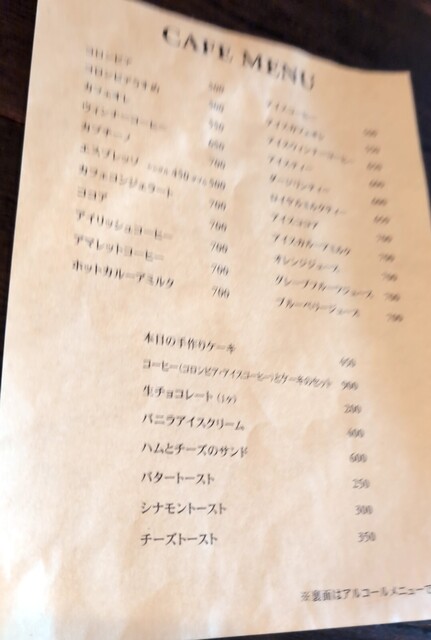 CAFE MENU
コロンビア 500
コロンビアうすめ 500
カフェオレ 550
ウィンナーコーヒー 650
カプチーノ 700
エスプレッソ 450 500
カフェコンジェラート 700
ココア 700
アイリッシュコーヒー 700
アマレットコーヒー 700
ホットカルーアミルク 700
アイスコーヒー
アイスカフェオレ 550
アイスウィンナーコーヒー
アイスティー
ダージリンティー 600
ロイヤルミルクティー 600
アイスココア
アイスカルーアミルク 700
オレンジジュース 700
グレープフルーツジュース 700
ブルーベリージュース 700
本日の手作りケーキ 450
コーヒー(コロンビア・アイスコーヒー)とケーキのセット 900
生チョコレート(1ヶ) 200
バニラアイスクリーム 400
ハムとチーズのサンド 600
バタートースト 250
シナモントースト 300
チーズトースト 350
※裏面はアルコールメニューで